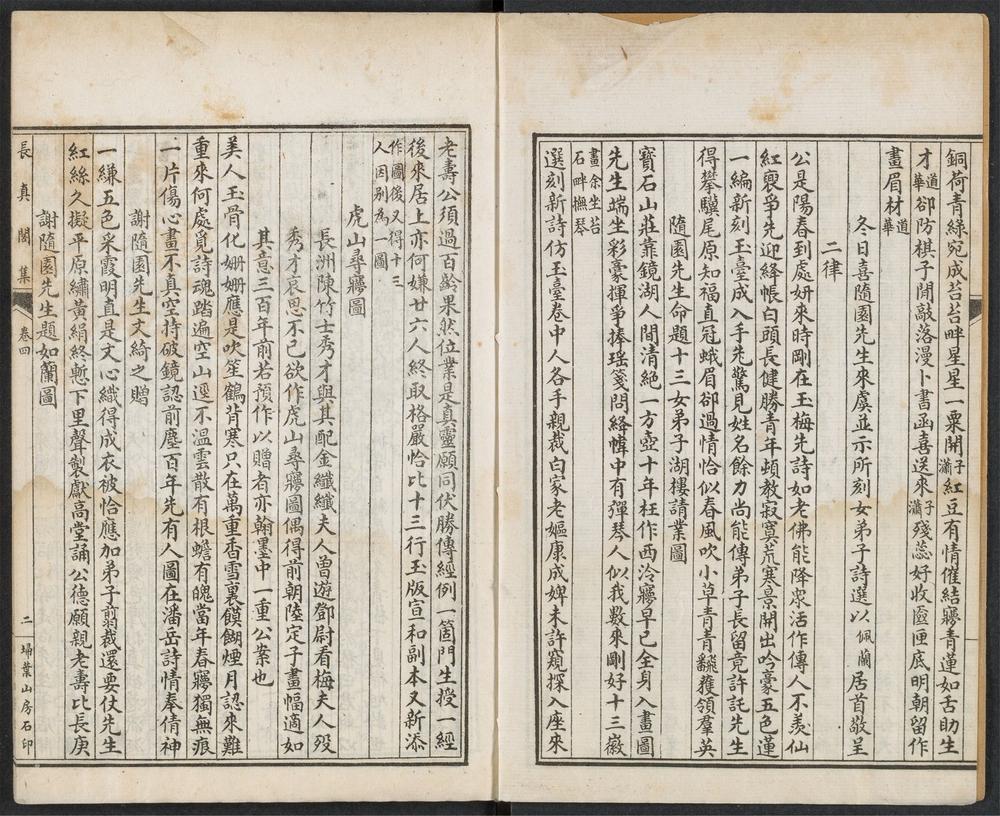 銅荷青綠宛成苔苔畔星星一粟開子瀟紅豆有情催結寱青蓮如舌助生
才道華卻防棋子閒敲落漫卜書函喜送來子瀟殘蕊好收匳匣底明朝留作
畫眉材道華
冬日喜隨園先生來虞並示所刻女弟子詩選以佩蘭居首敬呈
二律
公是陽春到處妍來時剛在玉梅先詩如老佛能降眾活作傳人不羨仙
紅褎爭先迎絳帳白頭長健勝青年頓教寂寞荒寒景開出吟豪五色蓮
一編新刻玉臺成入手先驚見姓名餘力尚能傳弟子長留竟許託先生
得攀驥尾原知福直冠蛾眉卻過情恰似春風吹小草青青飜獲領羣英
隨園先生命題十三女弟子湖樓請業圖
寶石山莊靠鏡湖人間清絕一方壺十年枉作西泠寱早已全身入畫圖
先生端坐彩毫揮爭捧瑤箋問絳幃中有彈琴人似我數來剛好十三徽
畫余坐苔
石畔撫琴
選刻新詩仿玉臺卷中人各手親裁白家老嫗康成婢未許窺探入座來
老壽公須過百齡果然位業是真靈願同伏勝傳經例一箇門生授一經
後來居上亦何嫌廿六人終取格嚴恰比十三行玉版宣和副本又新添
作圖後又得十三
人因別為一圖
虎山尋寱圖
長洲陳竹士秀才與其配金纖纖夫人曾遊鄧尉看梅夫人歿
秀才哀思不已欲作虎山尋寱圖偶得前朝陸定子畫幅適如
其意三百年前若預作以贈者亦翰墨中一重公案也
美人玉骨化姍姍應是吹笙鶴背寒只在萬重香雪裏饃餬煙月認來難
重來何處覓詩魂踏遍空山逕不溫雲散有根蟾有魄當年春寱獨無痕
一片傷心畫不真空持破鏡認前塵百年先有人圖在潘岳詩情奉倩神
謝隨園先生文綺之贈
一縑五色采霞明直是文心織得成衣被恰應加弟子翦裁還要仗先生
紅絲久擬平原繡黃絹終慙下里聲製獻高堂誦公德願親老壽比長庚
謝隨園先生題如蘭圖
長真閣集
卷四
二
埽葉山房石印